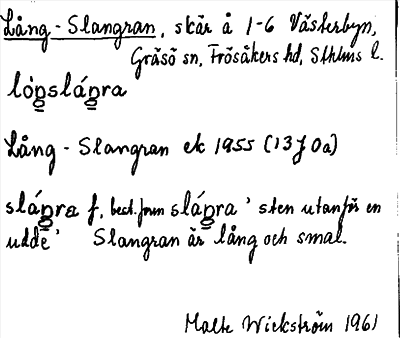 Lång-Slangran, skär å 1-6 Västerbyn,
Gräsö sn, Frösåkers hd, Sthlms l.
lòŋsláŋra
Lång-Slangran ek 1955 (13J 0a)
sláŋra f, best. form sláŋra ' sten utanför en
udde' Slangran är lång och smal.
Malte Wickström 1961